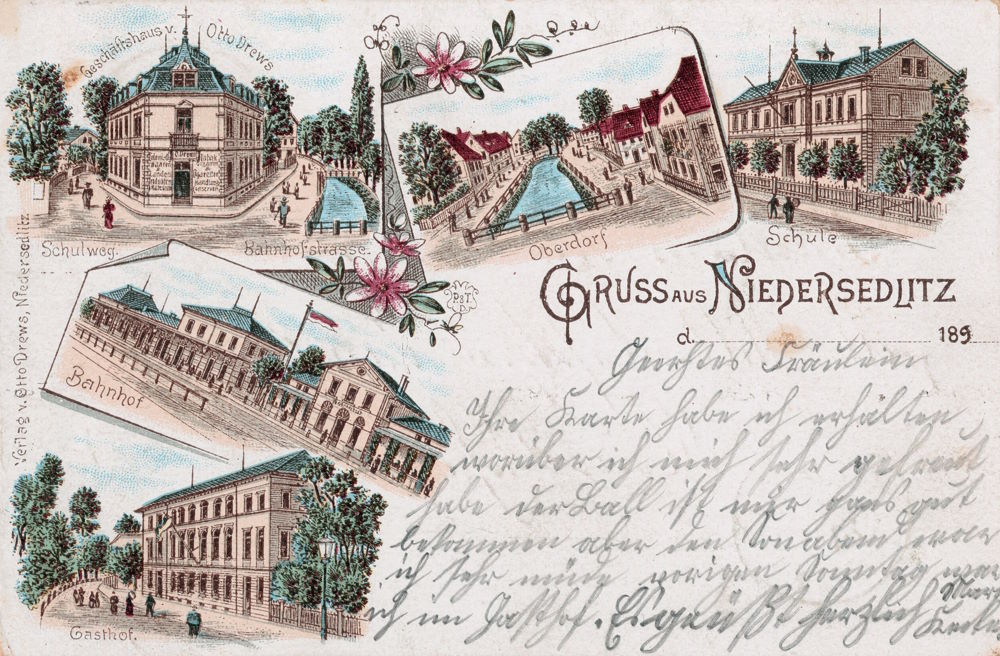 Geschäftshaus v. Otto Drews
Schulweg.
Bahnhofstrasse.
Oberdorf
Schule
Verlag v. Otto Drews, Niedersedlitz.
P&T.
Gruss aus Niedersedlitz
d. 189
Bahnhof
Gasthof.
Geerhtes Fräulein
Ihre Karte habe ich erhalten
worüber ich mich sehr gefreut
habe der Ball ist mir gans gut
bekommen aber den Sonabend war
ich sehr müde vorigen Sonntag war
ich im Gasthof. Es grüßt herzlich